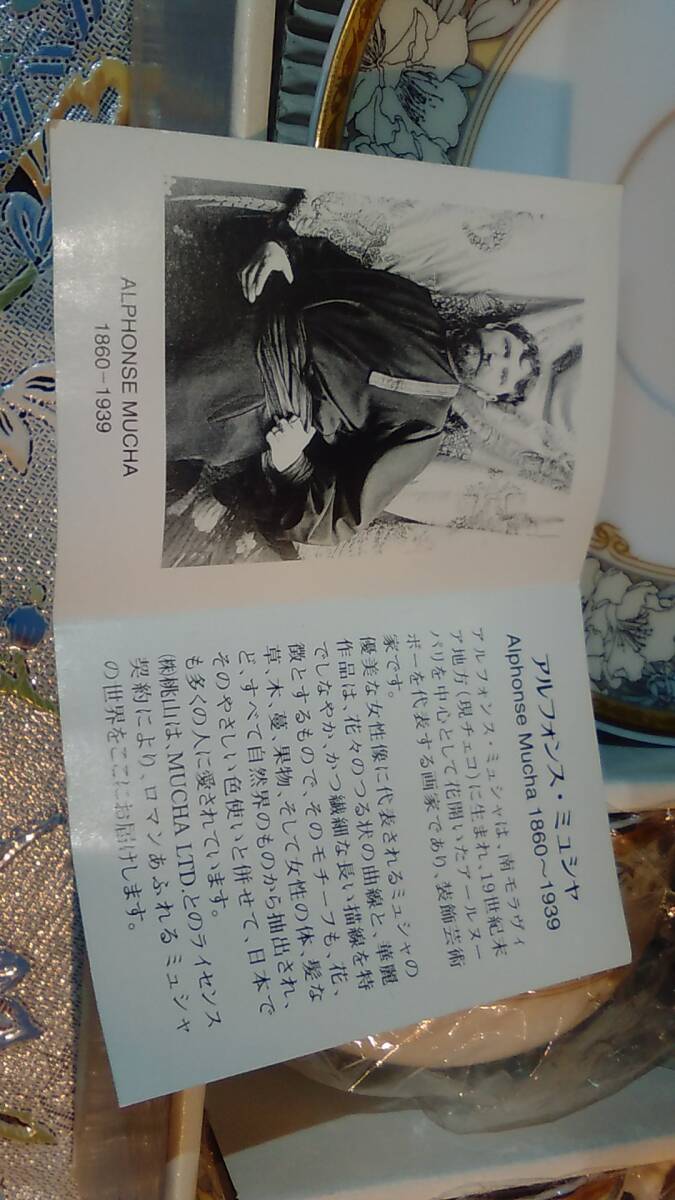 ALPHONSE MUCHA
1860-1939
アルフォンス・ミュシャ
Alphonse Mucha 1860〜1939
アルフォンス・ミュシャは、南モラヴィ
ア地方(現チェコ)に生まれ、19世紀末
パリを中心として花開いたアールヌー
ボーを代表する画家であり、装飾芸術
家です。
優美な女性像に代表されるミュシャの
作品は、花々のつる状の曲線と、華麗
でしなやか、かつ繊細な長い描線を特
徴とするもので、そのモチーフも、花、
草、木、蔓、果物、そして女性の体、髪な
ど、すべて自然界のものから抽出され、
そのやさしい色使いと併せて、日本で
も多くの人に愛されています。
㈱桃山は、MUCHA LTD.とのライセンス
契約により、ロマンあふれるミュシャ
の世界をここにお届けします。